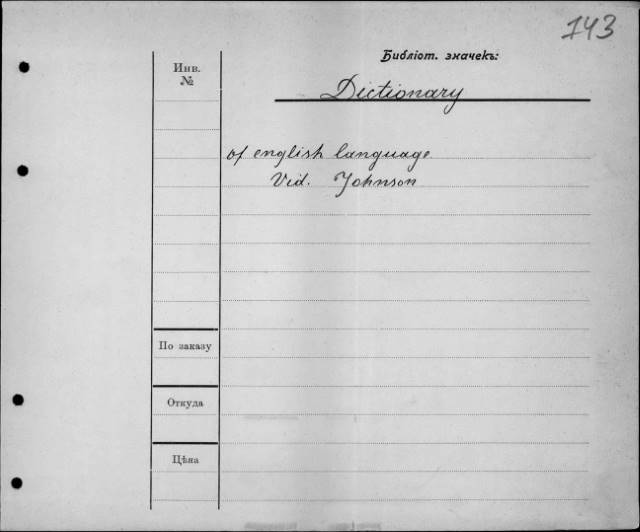 143
Библіот. значекъ:
Инв.
№
Dictionary
of english language
Vid. Johnson
По заказу
Откуда
Цѣна